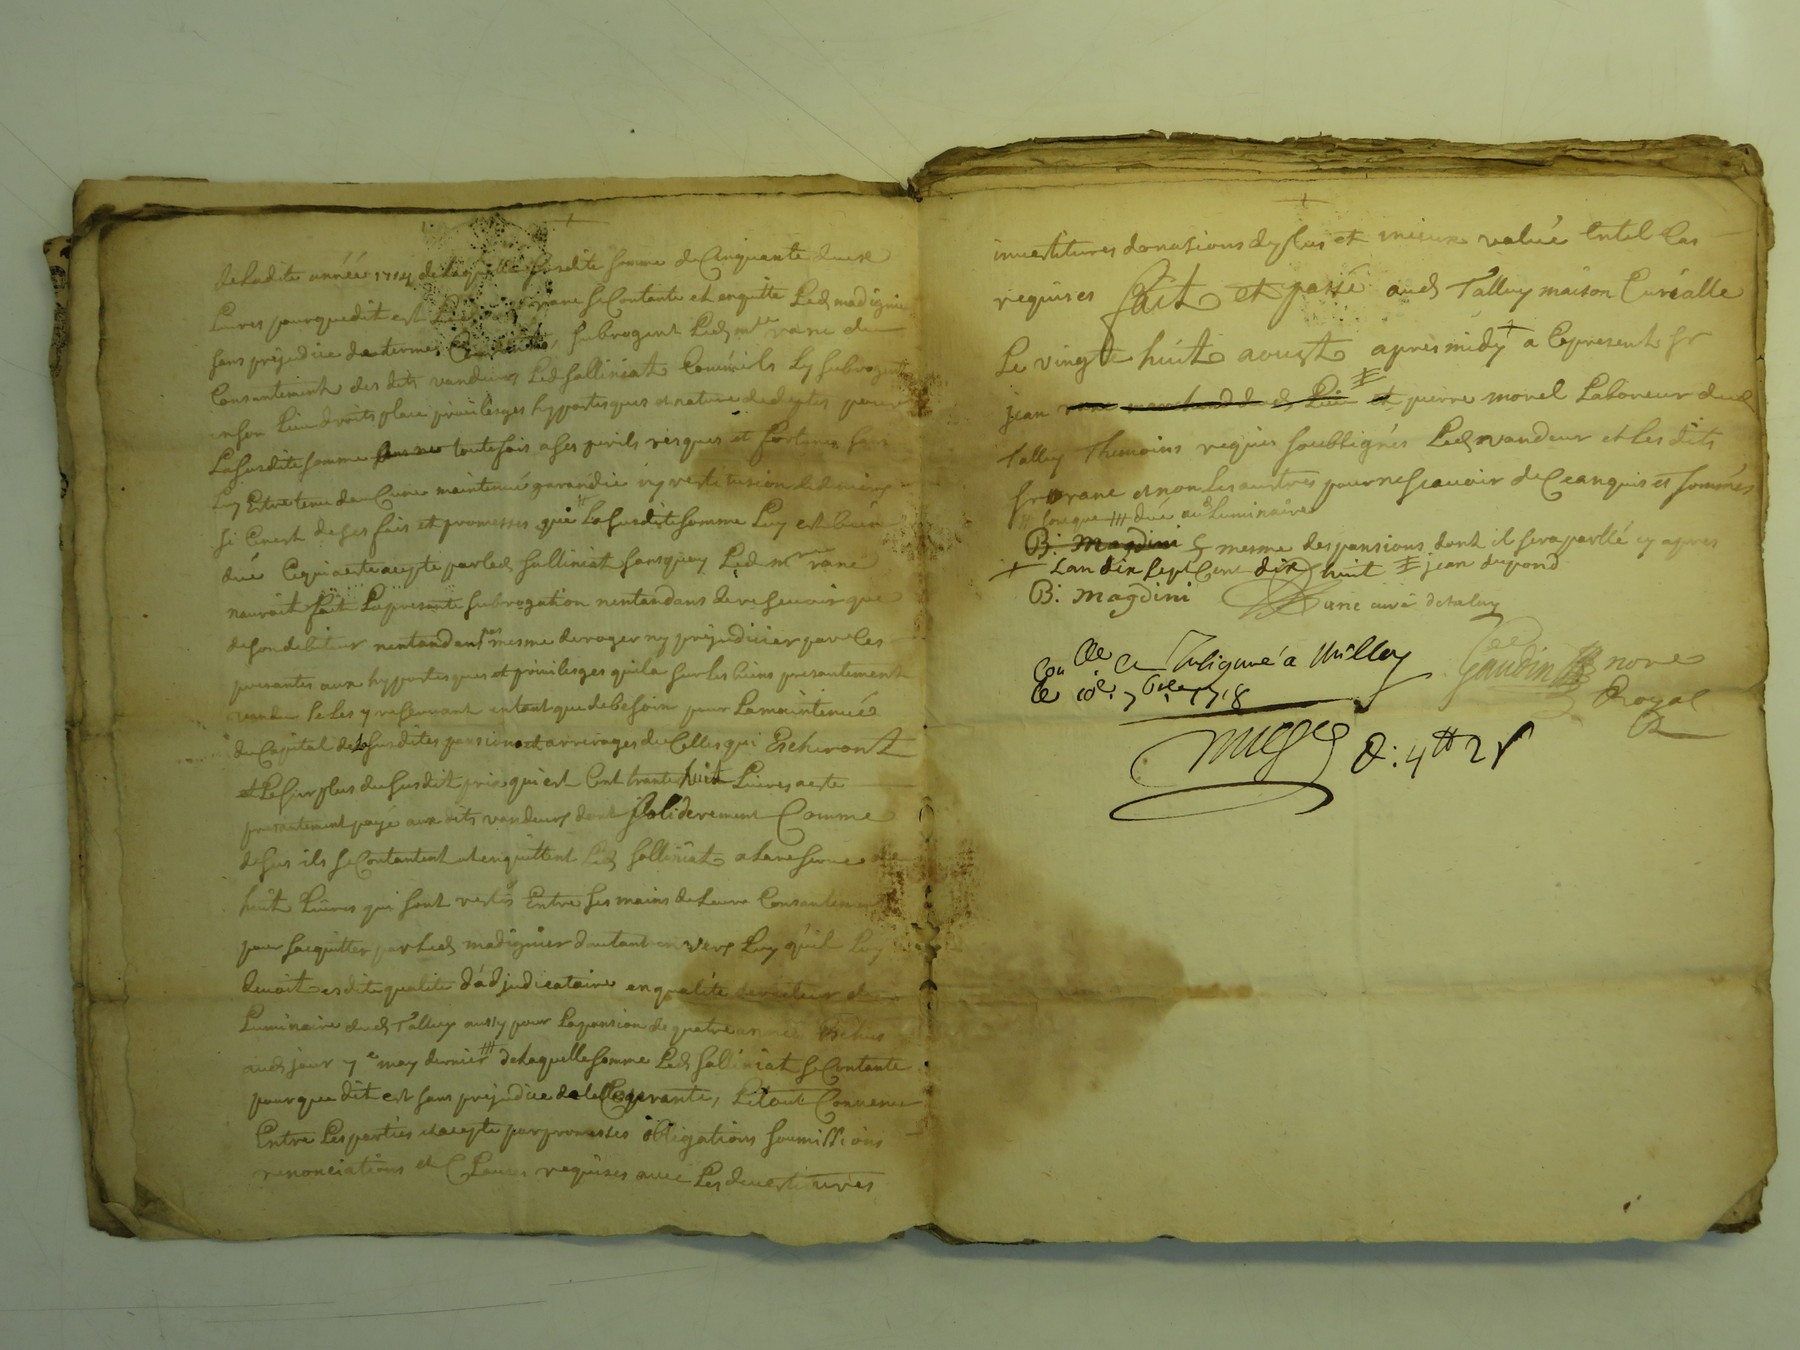 de Ladite année 1714 de laquelle susdite somme de Cinquante deux
Livres pour que dit est Led vane se Contante et enquitte Led madignier
sans préjudice de termes subrogent Led mre vane du
Consantement des dits vandeurs Led Salliniat Comme ils Ly subrogent
en son Lieu droits place privileges hyppoteques et nature de deptes pour
La susdite somme toutefois a ses perils risques et fortunes sans
Luy Estre tenu daucune maintenue garandie ny restitution de deniers
si Cenest de ses fais et promesses que La susdite somme Luy est bien
due Ce qui a este acepte par led Salliniat sans quoy Led mre vane
nauroit fait La presante subrogation nentandant de rescevoir que
de son debiteur nentandant pas mesme deroger ny prejudicier par Ces
presantes aux hyppoteques et privileges quil a sur les biens presantement
vandu se Les y reservant entant que de besoin pour La maintenue
du Capital de La susdites pansion et arrerages de Celles qui Escheront
et Le surplus du susdit prix qui est Cent trante huit Livres a este
presantement payé aux dits vandeurs dont soliderement Comme
desus ils se Contantent et enquittent Led Salliniat a La reserve de
huit Livres qui sont restés Entre ses mains de Leurs Consantement
pour sacquitter par Led madignier dautant envers Luy quil Luy
devoit esdite qualite d'adjudicataire en qualité de recteur du
Luminaire dud Talluy aussy pour La pansion de quatre année Echus
aud jour 7e may dernier III de Laquelle somme Led Salliniat se Contante
pour que dit est sans prejudice de la Courante, Le tout Convenu
Entre Les parties et acepte par promesses obligations soumissions
renonciations et Clauses requises avec Les devestitures
investitures donations du plus et mieux value Entel Cas
requises fait et passé aud Talluy maison Curialle
Le vingt huit aoust apres midy + a Ce present sr
jean vane marchand dud Lieu et pierre morel Laboureur dud
Talluy Themoins requis soubsignés Led vandeur et Les dits
sr vane et non Les auttres pour ne scavoir de Ce enquis et sommés
II III due aud Luminaire
B: magdini mesme des pansions dont il sera parllé cy apres
+ Lan dix sept Cent dix huit jean dupond
B: magdini vane curé de taluy
Conlle a Soligune a Milley
le 10e 7bre 1718
Gaudin nore
Royal
R: 4tt 2s